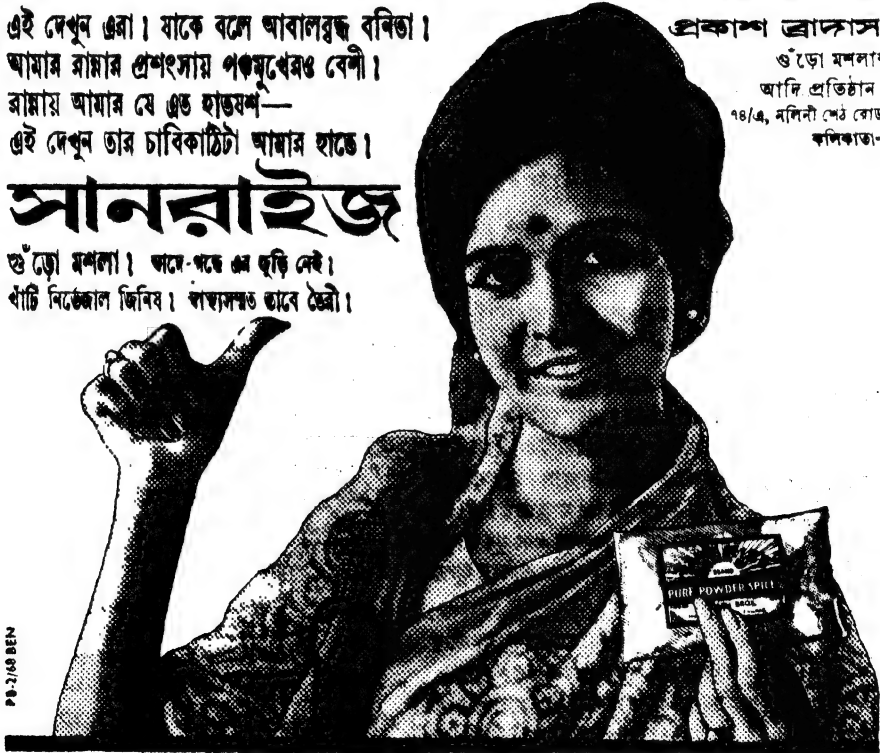 এই দেখুন এরা। যাকে বলে আবালবৃদ্ধ বনিতা।
আমার রান্নার প্রশংসায় পঞ্চমুখেরও বেশী।
রান্নায় আমার যে এত হাতযশ—
এই দেখুন তার চাবিকাঠিটা আমার হাতে।
সানরাইজ
গুঁড়ো মশলা। স্বাদে-গন্ধে এর জুড়ি নেই।
খাঁটি নির্ভেজাল জিনিষ। স্বাস্থ্যসম্মত ভাবে তৈরী।
প্রকাশ ব্রাদাস
গুঁড়ো মশলার
আদি প্রতিষ্ঠান
৭৪/এ, নলিনী শেঠ রোড
কলিকাতা-
BRAND
PURE POWDER SPICE
BROS.
PB-2/68 BEN